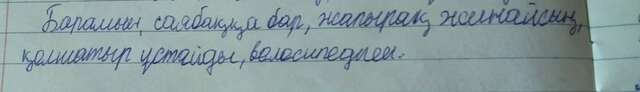 Барамын, саябаққа бар, жапырақ жинайсың,
қолшатыр ұстайды, велосипедпен.